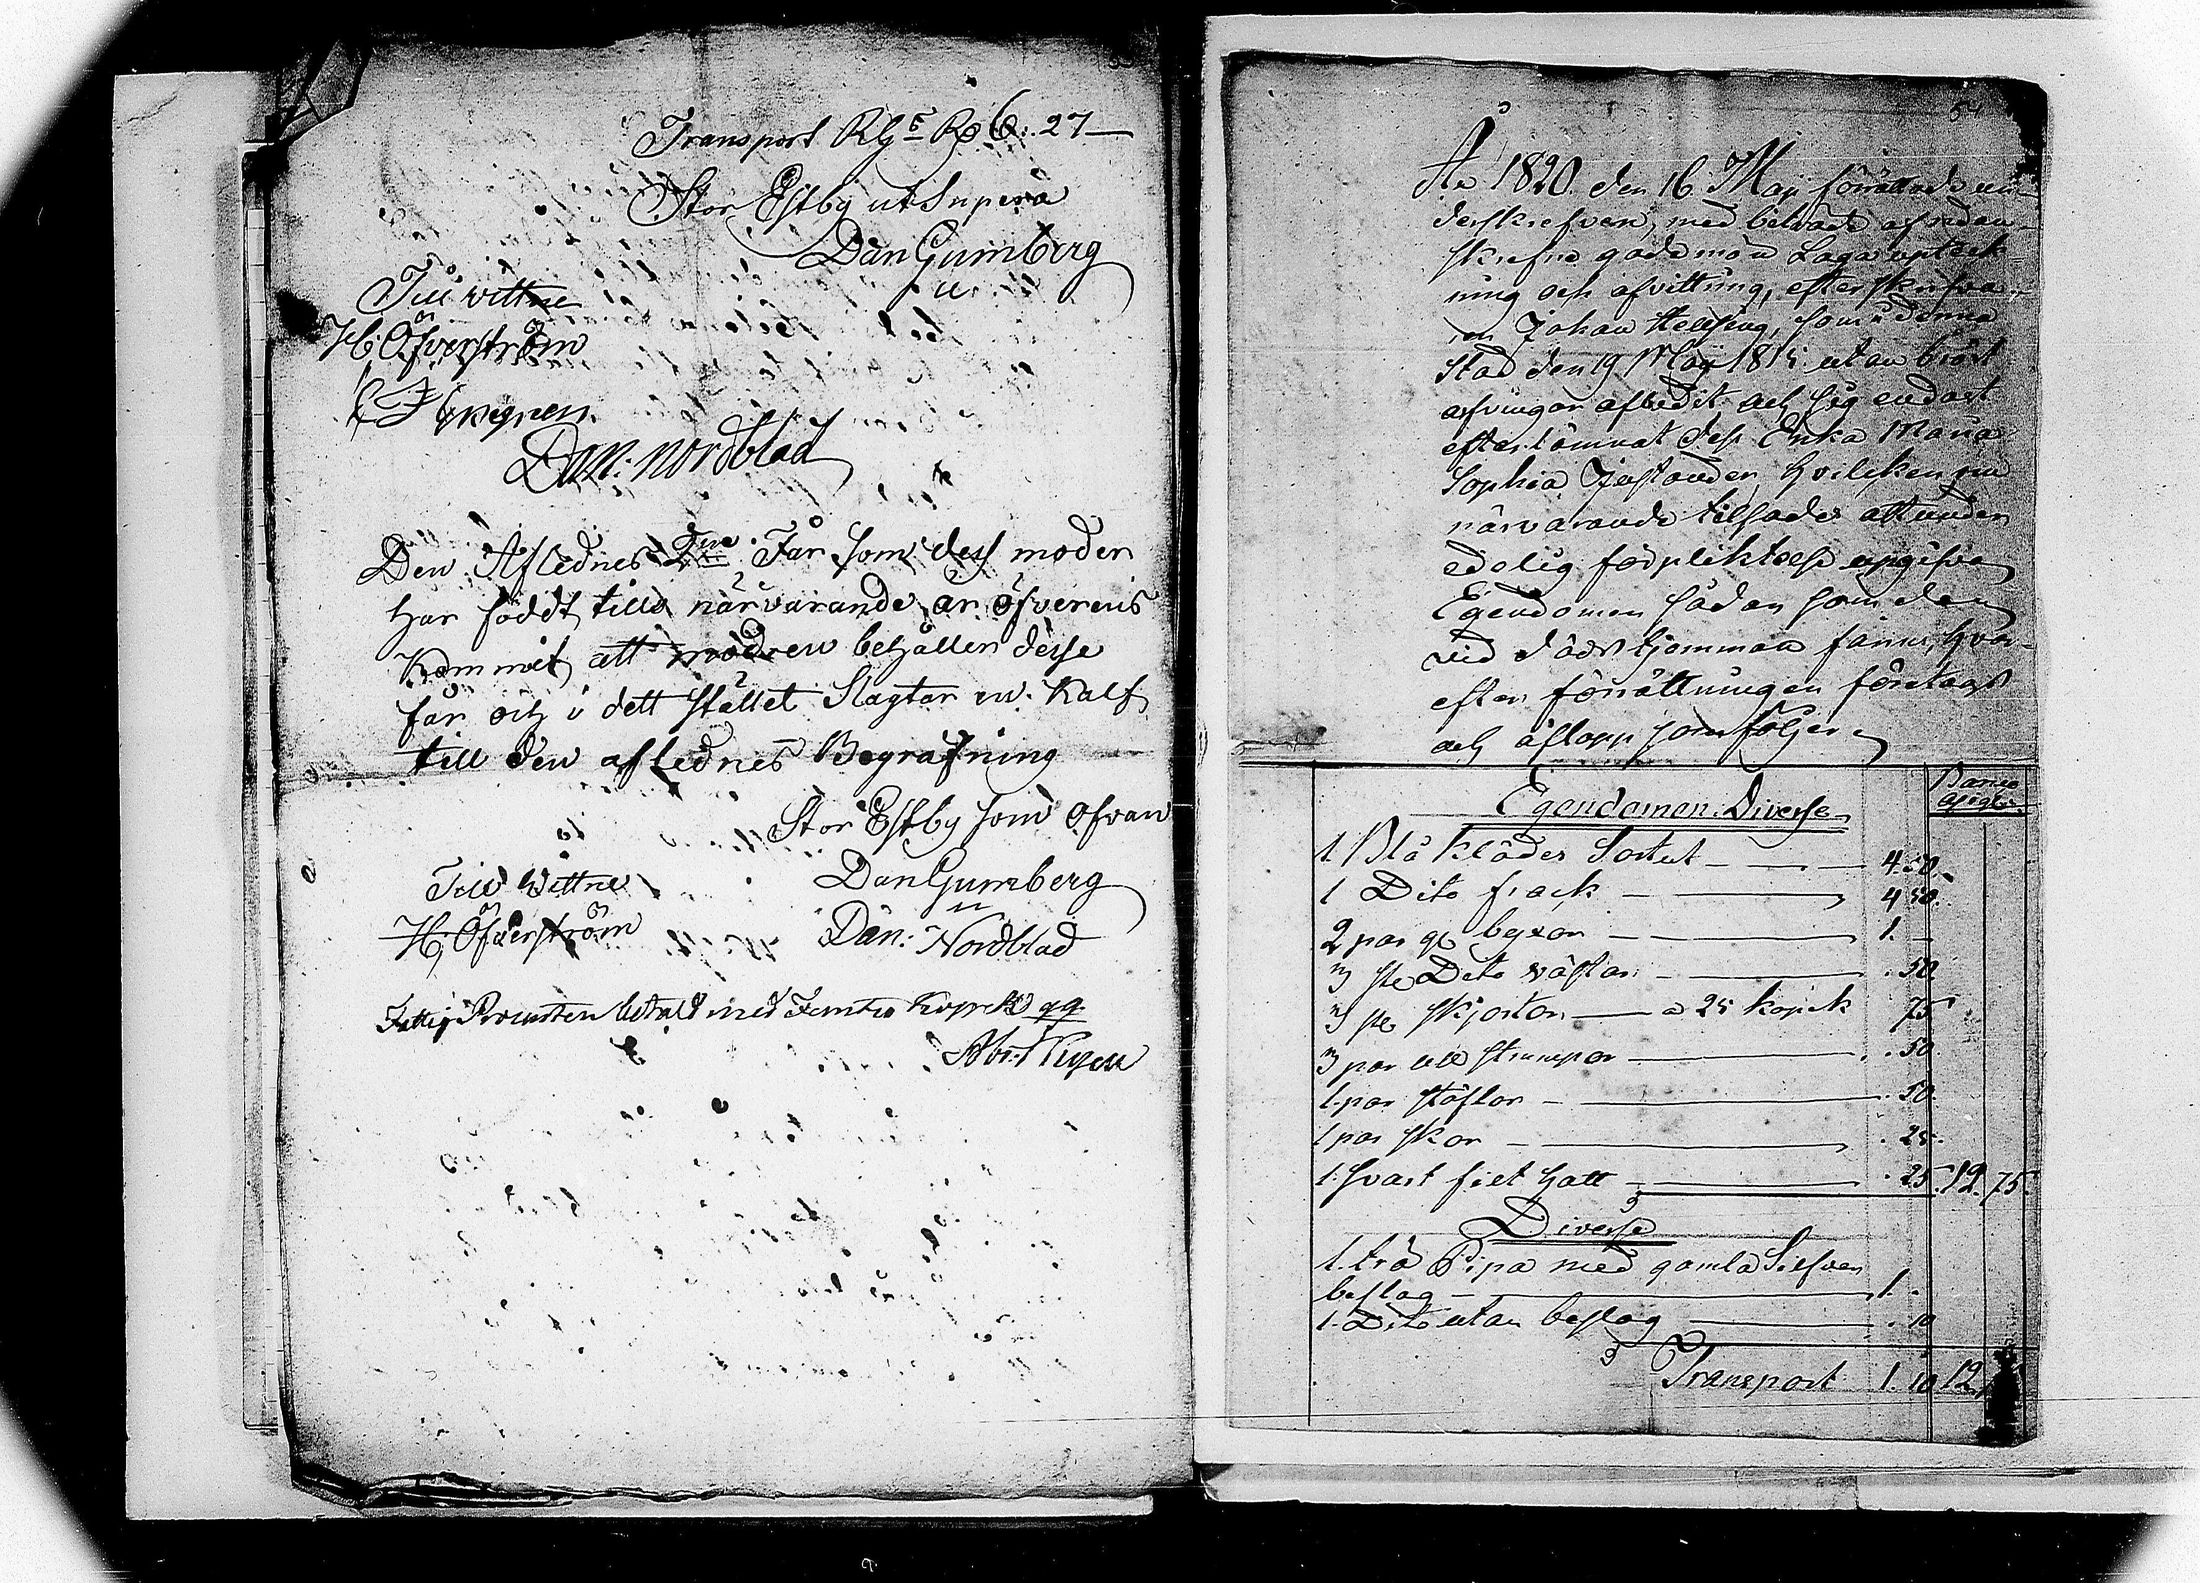 Transport Rg:s Ro 6: 27
Stor Estby ut Supera
Dan Gumberg
Till wittne
H: Öfverström
Dan: Nordblad
Den Aflednes 2ne Får som dess moder
har födt till närvarande är öfverens
kommit att modren behåller desse
får och i dett stället Slagtar en Kalf
till den aflednes Begrafning
Stor Estby som ofvan
Till Wittne Dan Gumberg
H: Öfverström Dan: Nordblad
Fattig Procenten betald med Femtio Kopek
54
År 1820 den 16 Maji förrättade un-
derskrefven, med biträde af nedan-
skrefne gode män Laga uptek-
ning och afvittring, efter skrifva-
ren Johan Helsing, som i denna
Stad den 19 Maji 181 utan bröst
arfvingar afledit och sig endast
efterlämnat dess Enka Maria
Sophia hvilcken nu
närvarande tilsades att under
edelig förpliktelse upgifva
Egendomen sådan som den
vid dödstjomman fanns, hvar-
efter förrättningen företogs
och aflopp som följer
Banco
Egendomen. Diverse
1. Blå klädes Sortut 4. 50.
1 Dito frack 4 50.
2 par ge byxor 1. —
3 ste Dito västar . 50
3 ste skjortor — a 25 kopek 75
3 par ull strumpor . 50
1. par stöflor . 50
1 par skor . 25.
1. svart filt hatt . 25. 12. 75.
Diverse
1. trä Pipa med gamla Silfver
beslag 1. .
1. Dito utan beslag . 10
Transport 1. 10 12